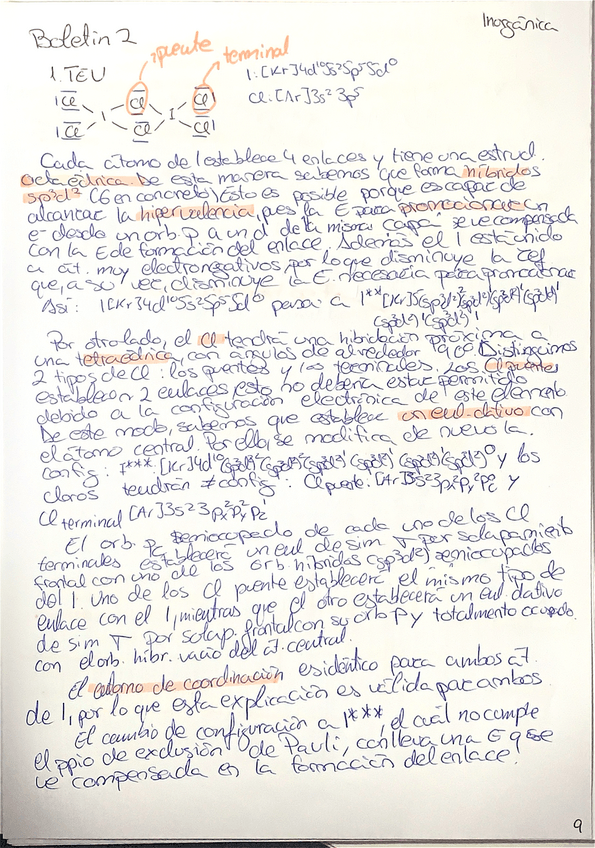 Inorgánica
Boletin 2
puente
terminal
1. TEV
I: [Kr]4d¹⁰5s²5p⁵5d⁰
Cl: [Ar]3s² 3p⁵
Cl Cl Cl
I I
Cl Cl Cl
Cada átomo de I establece 4 enlaces y tiene una estruct.
Octaédrica. De esta manera sabemos que forma híbridos
sp³d² (6 en concreto). Esto es posible porque es capaz de
alcanzar la hipervalencia, pues la E para promocionar un
e⁻ desde un orb. p a un d de la misma capa se ve compensada
con la E de formación del enlace. Además el I está unido
a át. muy electronegativos, por lo que disminuye la Zef
que, a su vez, disminuye la E. necesaria para promocionar
Así: I[Kr]4d¹⁰5s²5p⁵5d⁰ pasa a I** [Kr]5(sp³d²)²(sp³d²)²(sp³d²)¹(sp³d²)¹
(sp³d²)¹(sp³d²)¹
Por otro lado, el Cl tendrá una hibridación próxima a
una tetraédrica, con ángulos de alrededor 90°. Distinguimos
2 tipos de Cl: los puentes y los terminales. Los Cl puentes
establecen 2 enlaces, esto no debería estar permitido
debido a la configuración electrónica de este elemento
De este modo, sabemos que establece un enl. dativo con
el átomo central. Por ello, se modifica de nuevo la
config: I*** [Kr]4d¹⁰(sp³d²)²(sp³d²)²(sp³d²)¹(sp³d²)¹(sp³d²)¹(sp³d²)⁰ y los
cloros tendrán ≠ config: Cl puente: [Ar]3s²3px²py²pz⁰ y
Cl terminal [Ar]3s²3px²py²pz¹
El orb. pz semiocupado de cada uno de los Cl
terminales establecerá un enl. de sim σ por solapamiento
frontal con uno de los orb. híbridos (sp³d²) semiocupados
del I. Uno de los Cl puente establecerá el mismo tipo de
enlace con el I, mientras que el otro establecerá un enl. dativo
de sim σ por solap. frontal con su orb p y totalmente ocupado
con el orb. hibr. vacío del át. central.
El entorno de coordinación es idéntico para ambos át.
de I, por lo que esta explicación es válida para ambos.
El cambio de configuración a I***, el cual no cumple
el ppio de exclusión de Pauli, conlleva una E q se
ve compensada en la formación del enlace.
9